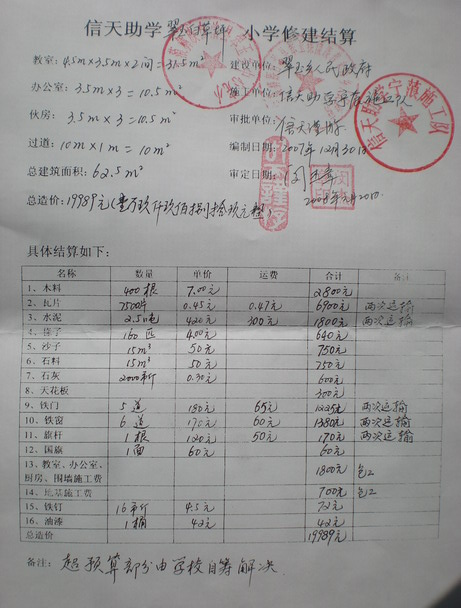 信天助学翠玉 小学修建结算
教室：4.5m×3.5m×2间=31.5m² 建设单位：翠玉乡人民政府
办公室：3.5m×3=10.5m² 施工单位：信天助学宁蒗施工队
伙房：3.5m×3=10.5m² 审批单位：信天
过道：10m×1m=10m² 编制日期：2007年12月30日
总建筑面积：62.5m² 审定日期：
总造价：19989元(壹万玖仟玖佰捌拾玖元整)
信天助学宁蒗施工队
具体结算如下：
名称 数量 单价 运费 合计 备注
1、木料 400根 7.00元 2800元
2、瓦片 7500片 0.45元 0.47元 6900元 两次运输
3、水泥 2.5吨 420元 300元 1800元 两次运输
4、 160匹 4.00元 640元
5、沙子 15m³ 50元 750元
6、石料 15m³ 50元 750元
7、石灰 2000市斤 0.30元 600元
8、天花板 300元
9、铁门 5道 180元 65元 1225元 两次运输
10、铁窗 6道 170元 60元 1380元 两次运输
11、旗杆 1根 120元 50元 170元 两次运输
12、国旗 1面 60元 60元
13、教室、办公室、厨房、围墙施工费 1800元 包工
14、地基施工费 700元 包工
15、铁钉 16市斤 4.5元 72元
16、油漆 1桶 42元 42元
总造价 19989元
备注：超预算部分由学校自筹解决